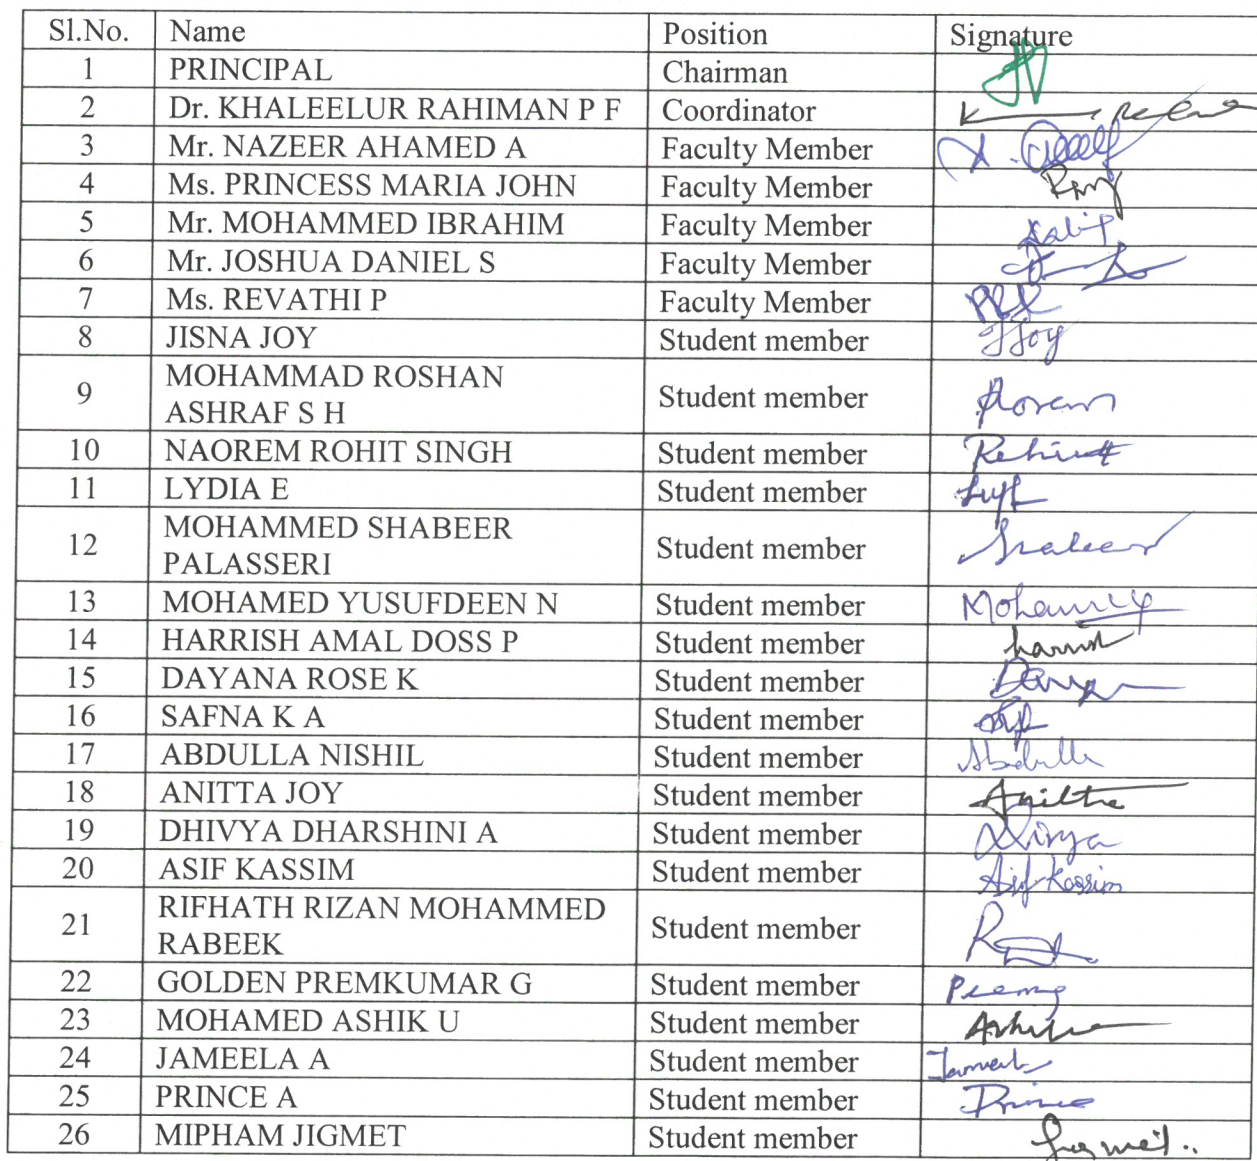 Sl.No. Name Position Signature
1 PRINCIPAL Chairman
2 Dr. KHALEELUR RAHIMAN P F Coordinator
3 Mr. NAZEER AHAMED A Faculty Member
4 Ms. PRINCESS MARIA JOHN Faculty Member
5 Mr. MOHAMMED IBRAHIM Faculty Member
6 Mr. JOSHUA DANIEL S Faculty Member
7 Ms. REVATHI P Faculty Member
8 JISNA JOY Student member JJoy
9 MOHAMMAD ROSHAN
ASHRAF S H Student member
10 NAOREM ROHIT SINGH Student member
11 LYDIA E Student member
12 MOHAMMED SHABEER
PALASSERI Student member
13 MOHAMED YUSUFDEEN N Student member
14 HARRISH AMAL DOSS P Student member
15 DAYANA ROSE K Student member
16 SAFNA K A Student member
17 ABDULLA NISHIL Student member Abdulla
18 ANITTA JOY Student member
19 DHIVYA DHARSHINI A Student member
20 ASIF KASSIM Student member Asif Kassim
21 RIFHATH RIZAN MOHAMMED
RABEEK Student member
22 GOLDEN PREMKUMAR G Student member
23 MOHAMED ASHIK U Student member
24 JAMEELA A Student member
25 PRINCE A Student member Prince
26 MIPHAM JIGMET Student member Jigmet..